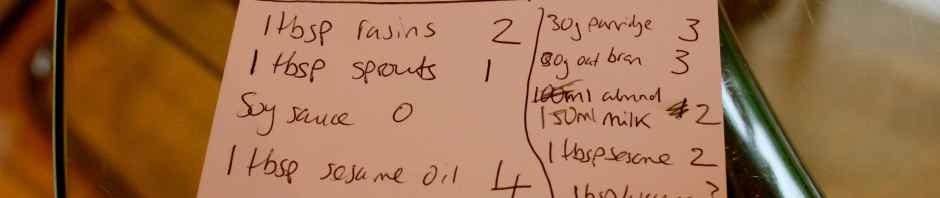 1 tbsp rasins 2
1 tbsp sprouts 1
Soy sauce 0
1 tbsp sesame oil 4
30g parridge 3
30g oat bran 3
100ml almond
150ml milk 2
1 tbsp sesame 2
1 tbsp